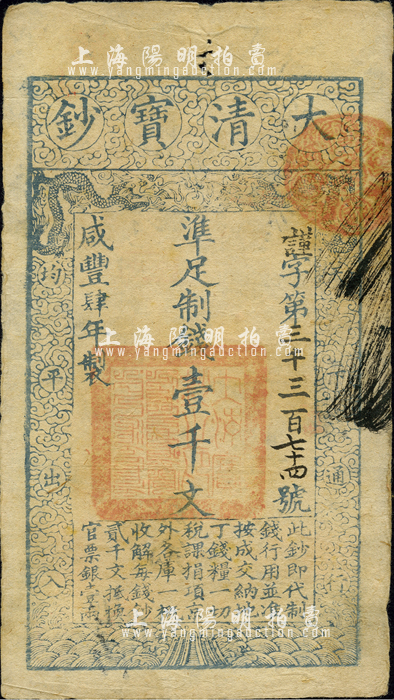 上海陽明拍賣
www.yangmingauction.com
大清寶鈔
天下通行
謹字第三十三百七十四號
準足制錢壹千文
咸豐肆年製
均平出入
此鈔即代制
錢行用並准
按成交納地
丁錢糧一切
稅課捐項京
外各庫一概
收解每錢鈔
貳千文抵換
官票銀壹兩
上海陽明拍賣
www.yangmingauction.com
上海陽明拍賣
www.yangmingauction.com